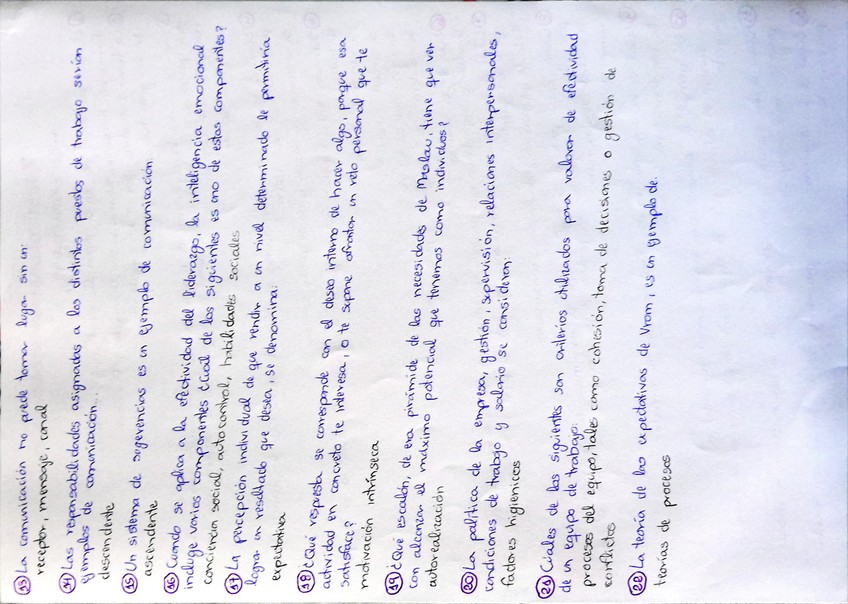 13 La comunicación no puede tomar lugar sin un:
receptor, mensaje, canal
14 Las responsabilidades asignadas a los distintos puestos de trabajo serían
ejemplos de comunicación...
descendente
15 Un sistema de sugerencias es un ejemplo de comunicación
ascendente
16 Cuando se aplica a la efectividad del liderazgo, la inteligencia emocional
incluye varios componentes ¿Cuál de los siguientes es uno de estos componentes?
conciencia social, autocontrol, habilidades sociales
17 La percepción individual de que rendir a un nivel determinado le permitiría
lograr un resultado que desea, se denomina:
expectativa
18 ¿Qué respuesta se corresponde con el deseo interno de hacer algo, porque esa
actividad en concreto te interesa, o te supone afrontar un reto personal que te
satisface?
motivación intrínseca
19 ¿Qué escalón, de esa pirámide de las necesidades de Maslow, tiene que ver
con alcanzar el máximo potencial que tenemos como individuos?
autorrealización
20 La política de la empresa, gestión, supervisión, relaciones interpersonales,
condiciones de trabajo y salario se consideran:
factores higiénicos
21 Cuales de los siguientes son criterios utilizados para valorar de efectividad
de un equipo de trabajo:
procesos del equipo, tales como cohesión, toma de decisiones o gestión de
conflictos
22 La teoría de las expectativas de Vrom, es un ejemplo de:
teorías de procesos